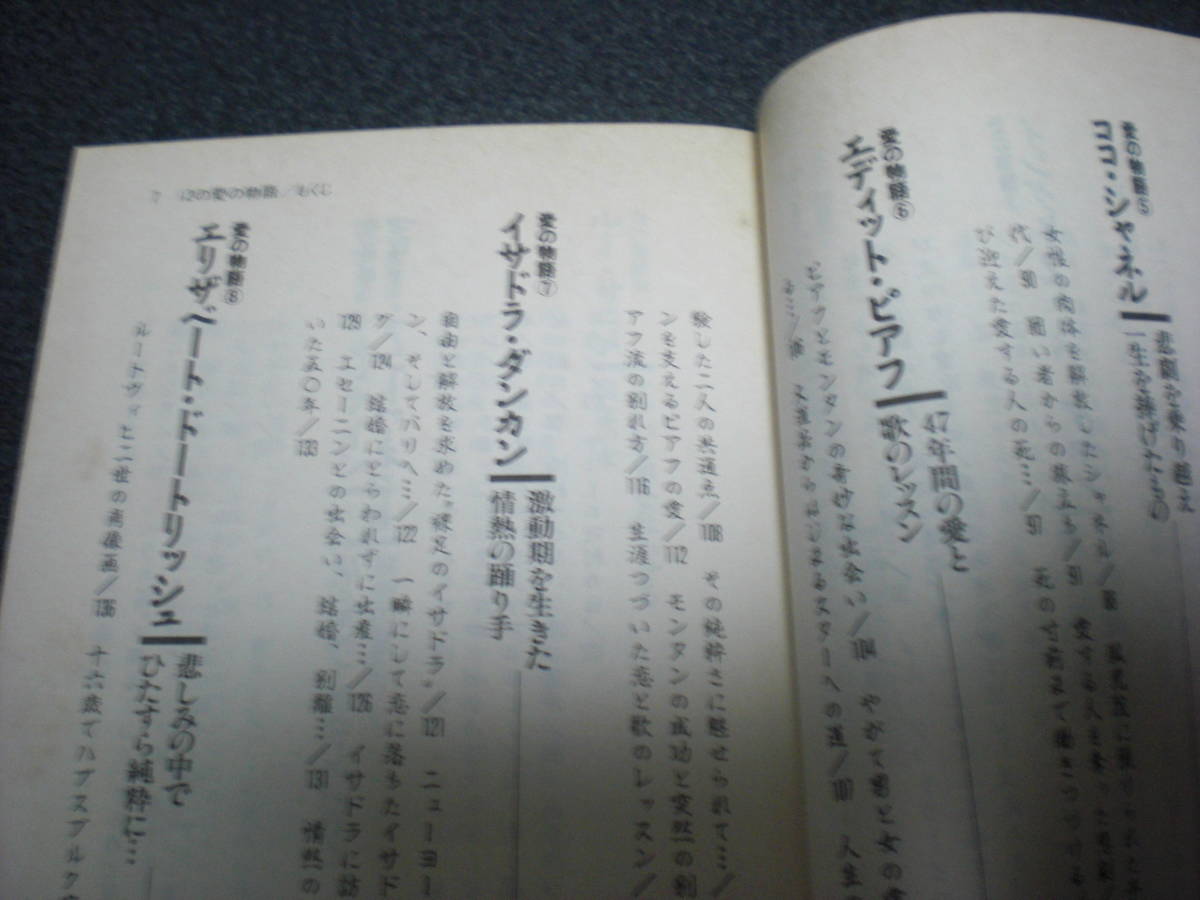 愛の物語⑤
ココ・シャネル
悲劇を乗り越え
一生を捧げたもの
女性の肉体を解放したシャネル/
代/90 囲い者からの旅立ち/91 愛する人を
び迎えた愛する人の死…/97 死のせ
愛の物語⑥
エディット・ピアフ
47年間の愛と
歌のレッスン
ピアフとモンタンの奇妙な出会い/104 やがて男と女の
スターへの道/107 人生
験した二人の共通点/108 その純粋さに魅せられて…/
ンを支えるピアフの愛/112 モンタンの成功と突然の別
アフ流の別れ方/116 生涯つづいた恋と歌のレッスン/
愛の物語⑦
イサドラ・ダンカン
激動期を生きた
情熱の踊り手
自由と解放を求めた“裸足のイサドラ”/121 ニューヨー
ン、そしてパリへ…/122 一瞬にして恋に落ちたイサド
ラ/124 結婚にとらわれずに出産…/126 イサドラに訪
129 エセーニンとの出会い、結婚、別離…/131 情熱の
いた五〇年/133
愛の物語⑧
エリザベート・ドートリッシュ
悲しみの中で
ひたすら純粋に…
ルートヴィヒ二世の肖像画/136 十六歳でハプスブルク
7 12の愛の物語/もくじ